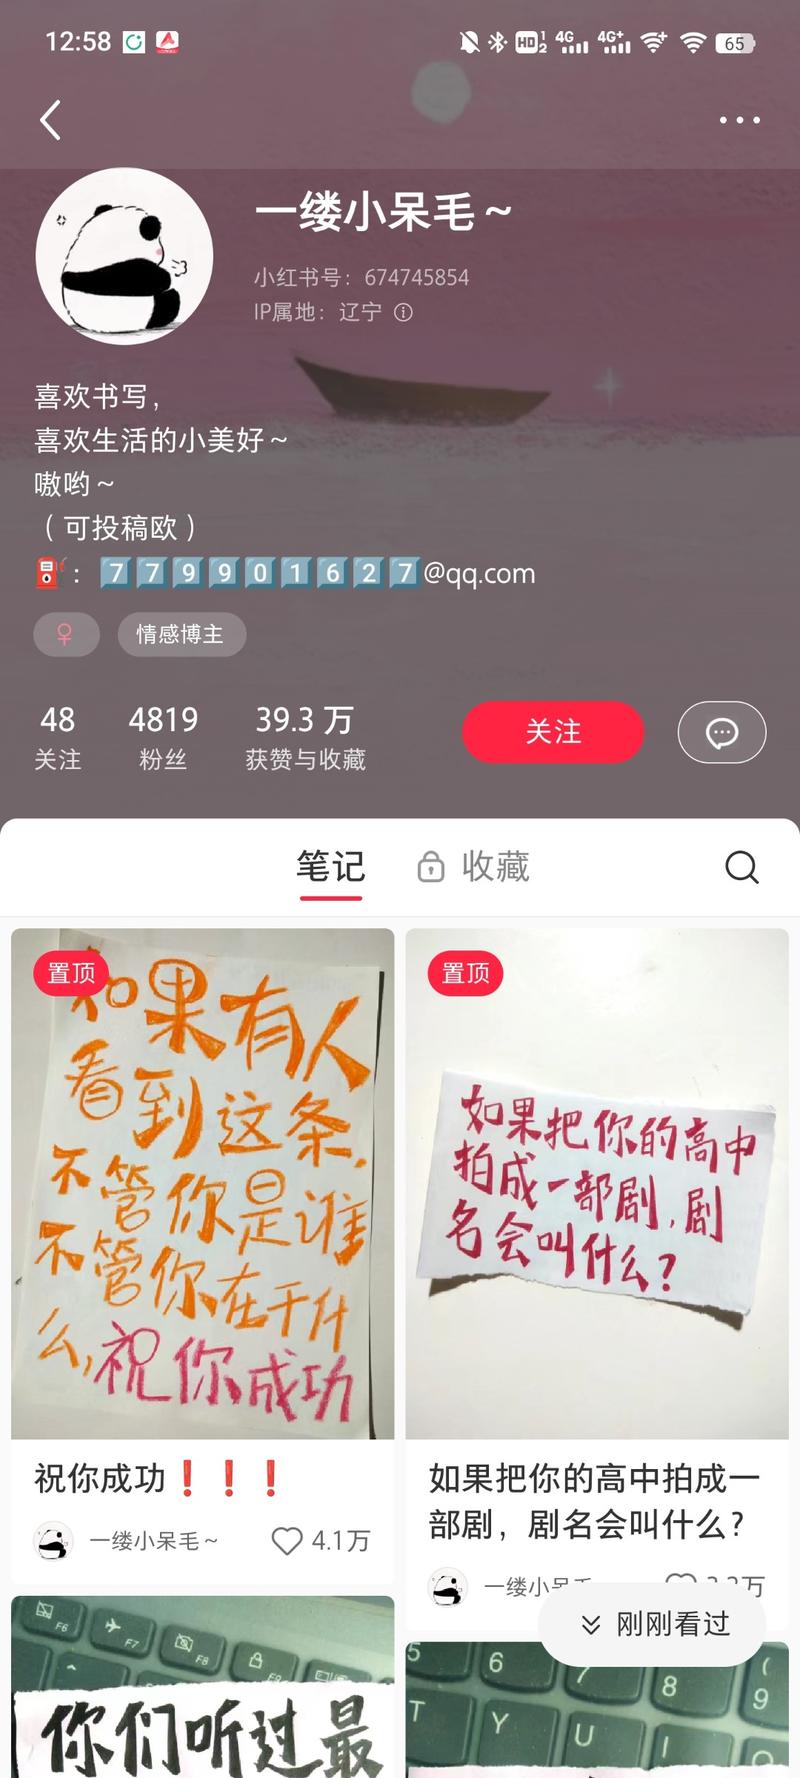 12:58
HD 1 2 4G 4G+ 65
一缕小呆毛～
小红书号：674745854
IP属地：辽宁
喜欢书写，
喜欢生活的小美好～
嗷哟～
（可投稿欧）
⛽️：7️⃣7️⃣9️⃣9️⃣0️⃣1️⃣6️⃣2️⃣7️⃣@qq.com
♀ 情感博主
48 4819 39.3 万
关注 粉丝 获赞与收藏
关注
笔记 收藏
置顶
如果有人
看到这条，
不管你是谁
不管你在干什
么，祝你成功
祝你成功❗❗❗
一缕小呆毛～ 4.1万
置顶
如果把你的高中
拍成一部剧，剧
名会叫什么？
如果把你的高中拍成一
部剧，剧名会叫什么？
一缕小呆毛
刚刚看过
F6 F7 F8
你们听过最
5 6 7 8 ( 9
T Y U I